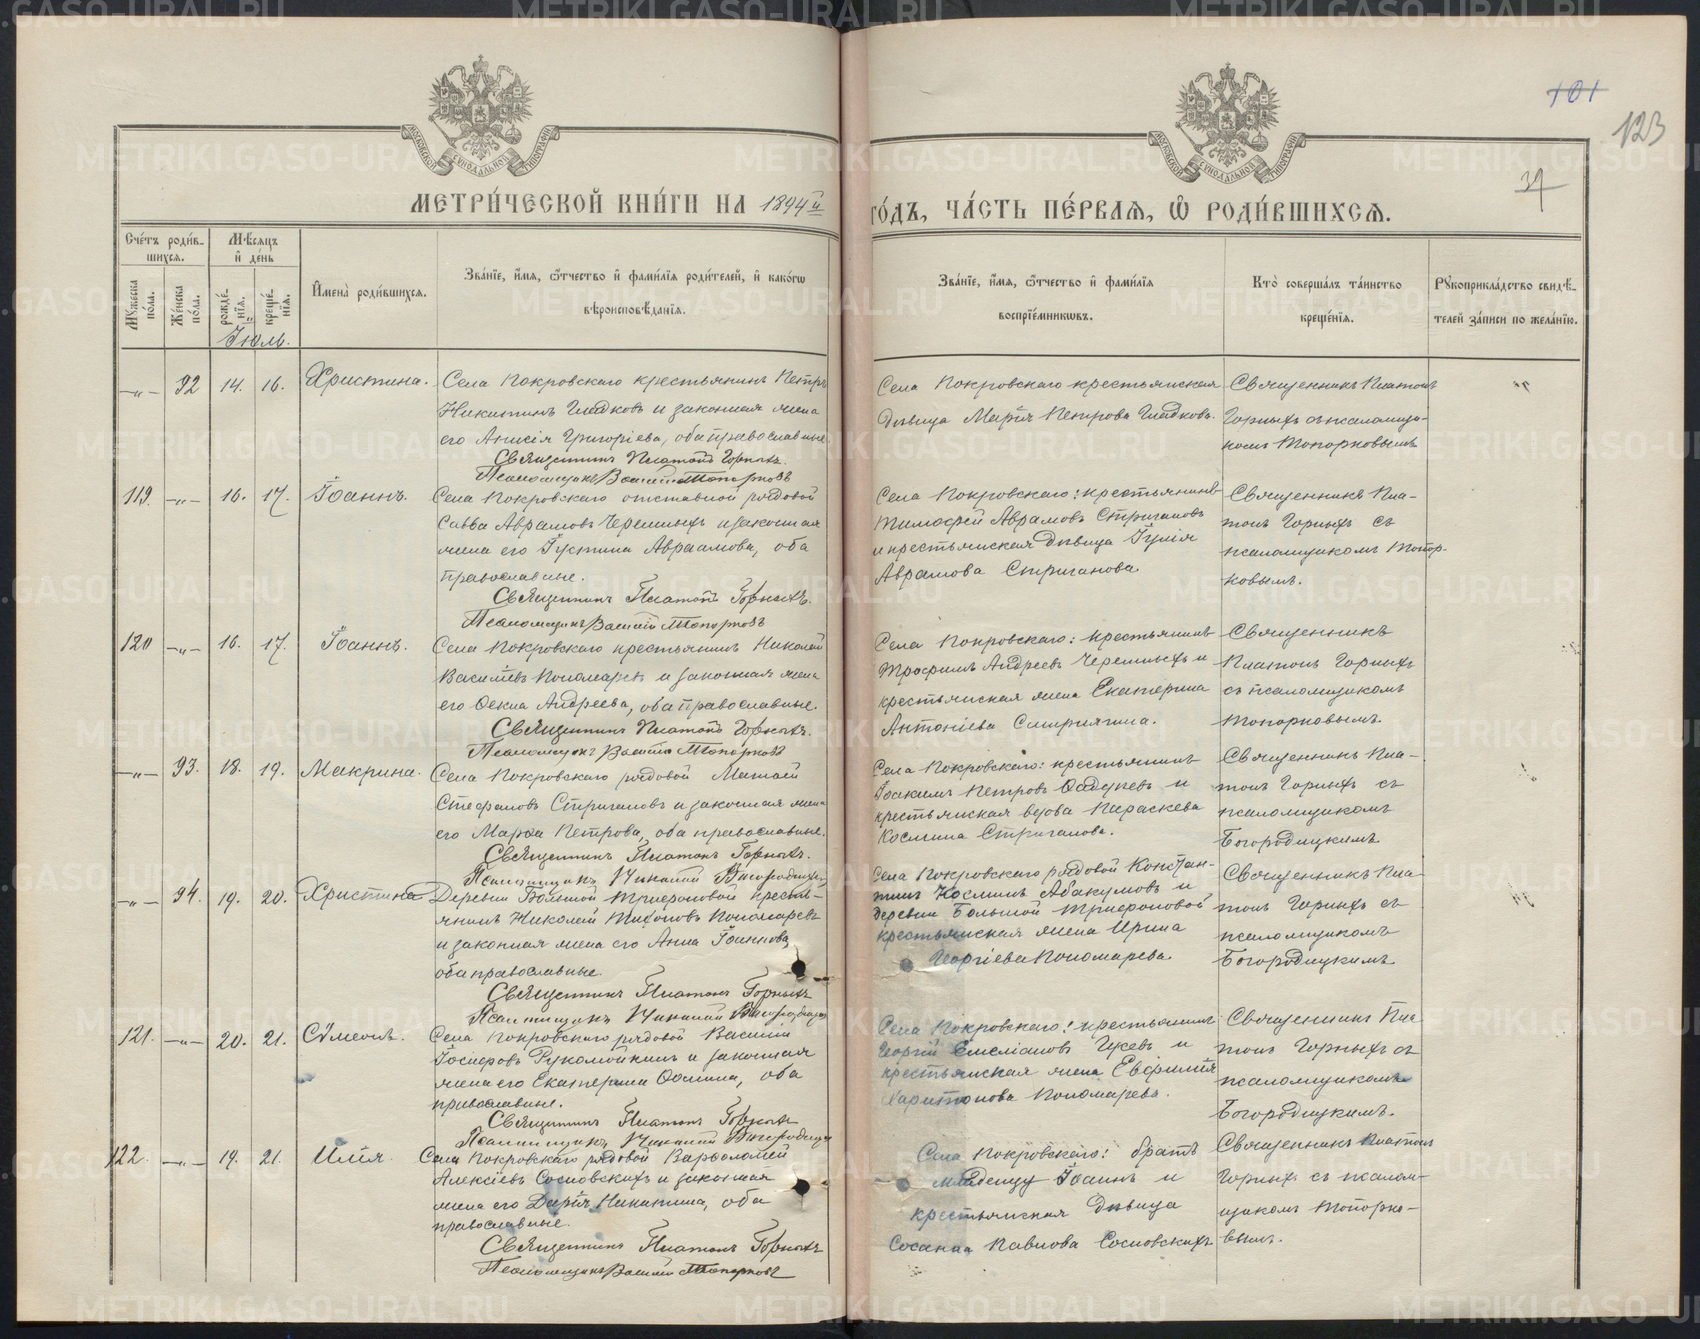 METRIKI.GASO-URAL.RU
101
123
34
МОСКОВСКОЙ СѴНОДАЛЬНОЙ ТИПОГРАФІИ
МОСКОВСКОЙ СѴНОДАЛЬНОЙ ТИПОГРАФІИ
МЕТРИ́ЧЕСКОЙ КНИ́ГИ НА 1894й
ГО́ДЪ, ЧА́СТЬ ПЕ́РВАѦ, Ѡ҆ РОДИ́ВШИХСѦ.
Сче́тъ роди́в-
шихсѧ.
Мѣ́сѧцъ
и҆ де́нь
Мꙋ́жеска по́ла.
Же́нска по́ла.
рожде́-
нїѧ.
креще́-
нїѧ.
И҆мена̀ роди́вшихсѧ.
Зва́нїе, и҆́мѧ, ѻ҆́тчество и҆ фами́лїѧ роди́телей, и҆ како́гѡ
вѣроисповѣ́данїѧ.
Зва́нїе, и҆́мѧ, ѻ҆́тчество и҆ фами́лїѧ
воспрїе́мникѡвъ.
Кто̀ соверша́лъ та́инство
креще́нїѧ.
Рꙋкоприкла́дство свидѣ́-
телей за́писи по жела́нїю.
Іюль.
—„— 92 14. 16. Христина.
Села Покровскаго крестьянинъ Петръ
Никитинъ Гладковъ и законная жена
его Анисія Григоріева, оба православные.
Священникъ Платонъ Горныхъ.
Псаломщикъ Василій Топорковъ
Села Покровскаго крестьянская
дѣвица Марія Петрова Гладкова.
Священникъ Платонъ
Горныхъ съ псаломщи-
комъ Топорковымъ
119. —„— 16. 17. Іоаннъ.
Села Покровскаго отставной рядовой
Савва Аврамовъ Черемныхъ и законная
жена его Іустина Авраамова, оба
православные.
Священникъ Платонъ Горныхъ.
Псаломщикъ Василій Топорковъ
Села Покровскаго: крестьянинъ
Тимофей Аврамовъ Стригановъ
и крестьянская дѣвица Іулія
Аврамова Стриганова
Священникъ Пла-
тонъ Горныхъ съ
псаломщикомъ Топор-
ковымъ.
120 —„— 16. 17. Іоаннъ.
Села Покровскаго крестьянинъ Николай
Васильевъ Пономаревъ и законная жена
его Ѳекла Андреева, оба православные.
Священникъ Платонъ Горныхъ.
Псаломщикъ Василій Топорковъ
Села Покровскаго: крестьянинъ
Трофимъ Андреевъ Черемныхъ и
крестьянская жена Екатерина
Антоніева Смирнягина.
Священникъ
Платонъ Горныхъ
съ псаломщикомъ
Топорковымъ.
—„— 93. 18. 19. Макрина.
Села Покровскаго рядовой Матѳей
Стефановъ Стригановъ и законная жена
его Марѳа Петрова, оба православные.
Священникъ Платонъ Горныхъ.
Псаломщикъ Богородицкій
Села Покровскаго: крестьянинъ
Іоакимъ Петровъ и
крестьянская вдова Параскева
Космина Стриганова.
Священникъ Пла-
тонъ Горныхъ съ
псаломщикомъ
Богородицкимъ
—„— 94. 19. 20. Христина
Деревни Большой Трифоновой кресть-
янинъ Николай Тихоновъ Пономаревъ
и законная жена его Анна Іоаннова,
оба православные.
Священникъ Платонъ Горныхъ
Псаломщикъ Богородицкій
Села Покровскаго рядовой Констан-
тинъ Косминъ Абакумовъ и
деревни Большой Трифоновой
крестьянская жена Ирина
Георгіева Пономарева.
Священникъ Пла-
тонъ Горныхъ съ
псаломщикомъ
Богородицкимъ
121. —„— 20. 21. Сѵмеонъ.
Села Покровскаго рядовой Василій
Іосифовъ Рукомойкинъ и законная
жена его Екатерина Ѳомина, оба
православные.
Священникъ Платонъ Горныхъ
Псаломщикъ Богородицкій
Села Покровскаго: крестьянинъ
Георгій Емеліановъ Гусевъ и
крестьянская жена Евфимія
Харитонова Пономарева.
Священникъ Пла-
тонъ Горныхъ съ
псаломщикомъ
Богородицкимъ.
122. —„— 19. 21. Илія.
Села Покровскаго рядовой Варѳоломей
Алексіевъ Сосновскихъ и законная
жена его Дарія Никитина, оба
православные.
Священникъ Платонъ Горныхъ
Псаломщикъ Василій Топорковъ
Села Покровскаго: братъ
младенцу Іоаннъ и
крестьянская дѣвица
Сосанна Павлова Сосновскихъ
Священникъ Платонъ
Горныхъ съ псалом-
щикомъ Топорко-
вымъ.